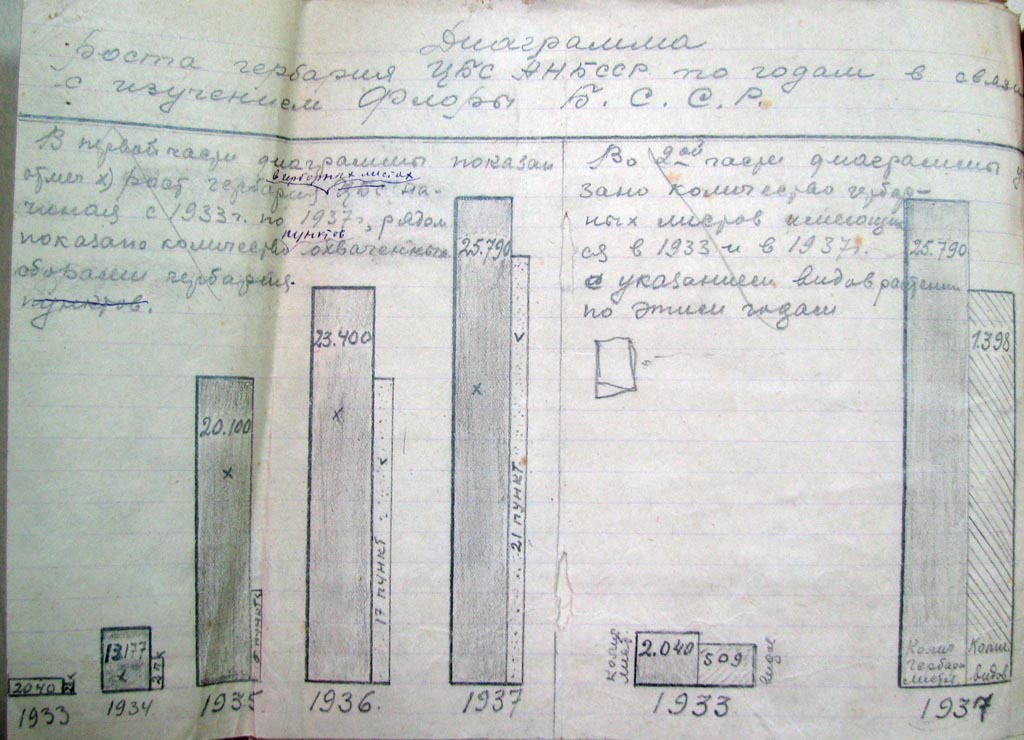 Диаграмма
Роста гербария ЦБС АНБССР по годам в связи
с изучением Флоры Б. С. С. Р.
В первой части диаграммы показан
отмеч х) рост гербария ЦБС на-
в гербарных листах
чиная с 1933 г. по 1937 г, рядом
пунктов
показано количество охваченных
сборами гербария
пунктов.
Во 2ой части диаграммы
зано количество гербар-
ных листов имеющих
ся в 1933 и в 1937 г.
с указанием видов растении
по этим годам
2040
1933
13.177
2 п к
1934
20.100
х
1935
23.400
х
17 пункт
1936.
25.790
х
21 пункт
1937
2.040
509
видов
1933
25.790
1.398
Колич
гербарн
листов
Колич.
видов
1937